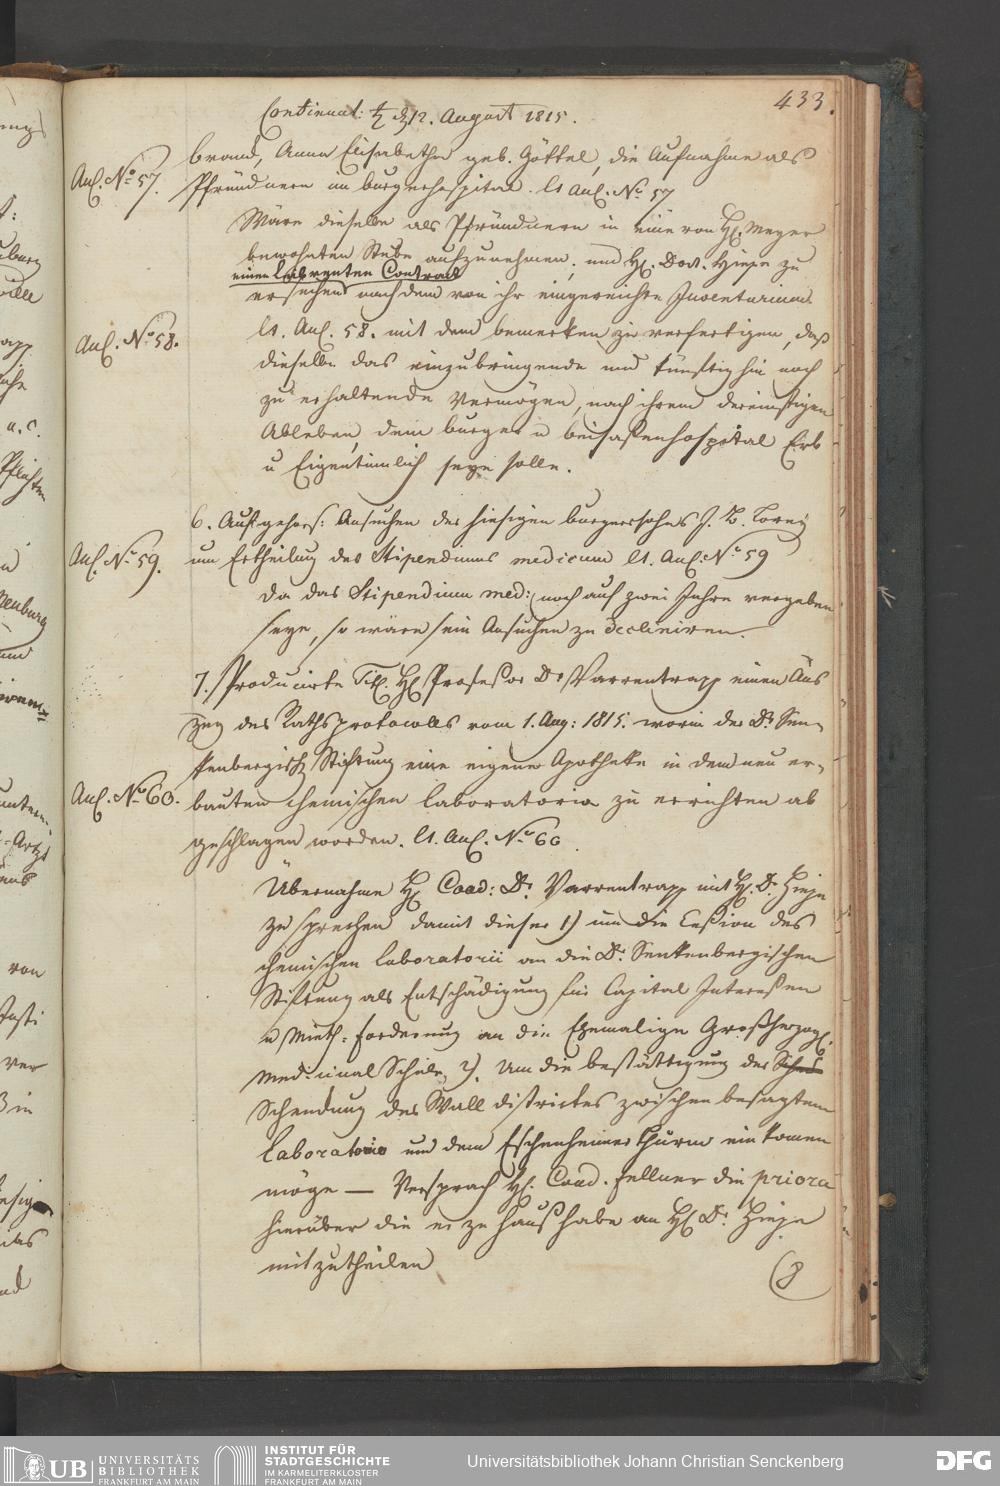 433.
Continuat: ♄ d 12. August 1815.
brand, Anna Elisabetha geb. Göttel, die Aufnahme als
Anl. No 57.
Pfründnern im burgerhospital. lt Anl. No 57
Wäre dieselbe als Pfründnern in eine von H. Meyer
bewohnten Stube aufzunehmen, und H. Doct. Hieje zu
einen Leibrenten Contract
ersuchen nach dem von ihr eingereichte Inventarium
Anl. No 58.
lt. Anl. 58. mit dem bemerken zu verfertigen, daß
dieselbe das einzubringende und künftighin noch
zu erhaltende Vermögen, nach ihrem dereinstigen
Ableben, dem burger u beisaßenhospital Erb
u Eigentümlich seye solle.
6. Auf gehors: Ansuchen des hiesigen burgersohns J. B. Lorey
Anl. No 59.
um Ertheilung des Stipendiums medicum lt. Anl: No 59
Da das Stipendium med: noch auf zwei Jahre vergeben
seye, so wäre sein Ansuchen zu decliniren.
7. Producirte Tit. H Profeßor Dr Varrentrapp einen Aus
zug des Rathsprotocolls vom 1. Aug: 1815. worin der Dr. Sen-
kenbergisch Stiftung eine eigene Apotheke in dem neu er-
Anl. No 60.
bauten chemischen laboratorio zu errichten ab
geschlagen worden. lt. Anl. No 60
Übernahme H. Coad: Dr. Varrentrapp mit H. Dr. Hieje
zu sprechen damit dieser 1) um die Ceßion des
chemischen laboratorii an die Dr. Senkenbergischen
Stiftung als Entschädigung für Capital Intereßen
u Mieth-forderung an die Ehemalige Großherzogl.
Medicinal Schule, 2). Um die bestättigung der
Schenkung des Wall districtes zwischen besagtem
laboratorio und dem Eschenheimer thurm einkomen
möge — Versprach H. Coad. Fellner die priora
hierüber die er zu Hauß habe an H Dr. Hieje
mitzutheilen
(8
UB UNIVERSITÄTS
BIBLIOTHEK
FRANKFURT AM MAIN
INSTITUT FÜR
STADTGESCHICHTE
IM KARMELITERKLOSTER
FRANKFURT AM MAIN
Universitätsbibliothek Johann Christian Senckenberg
DFG